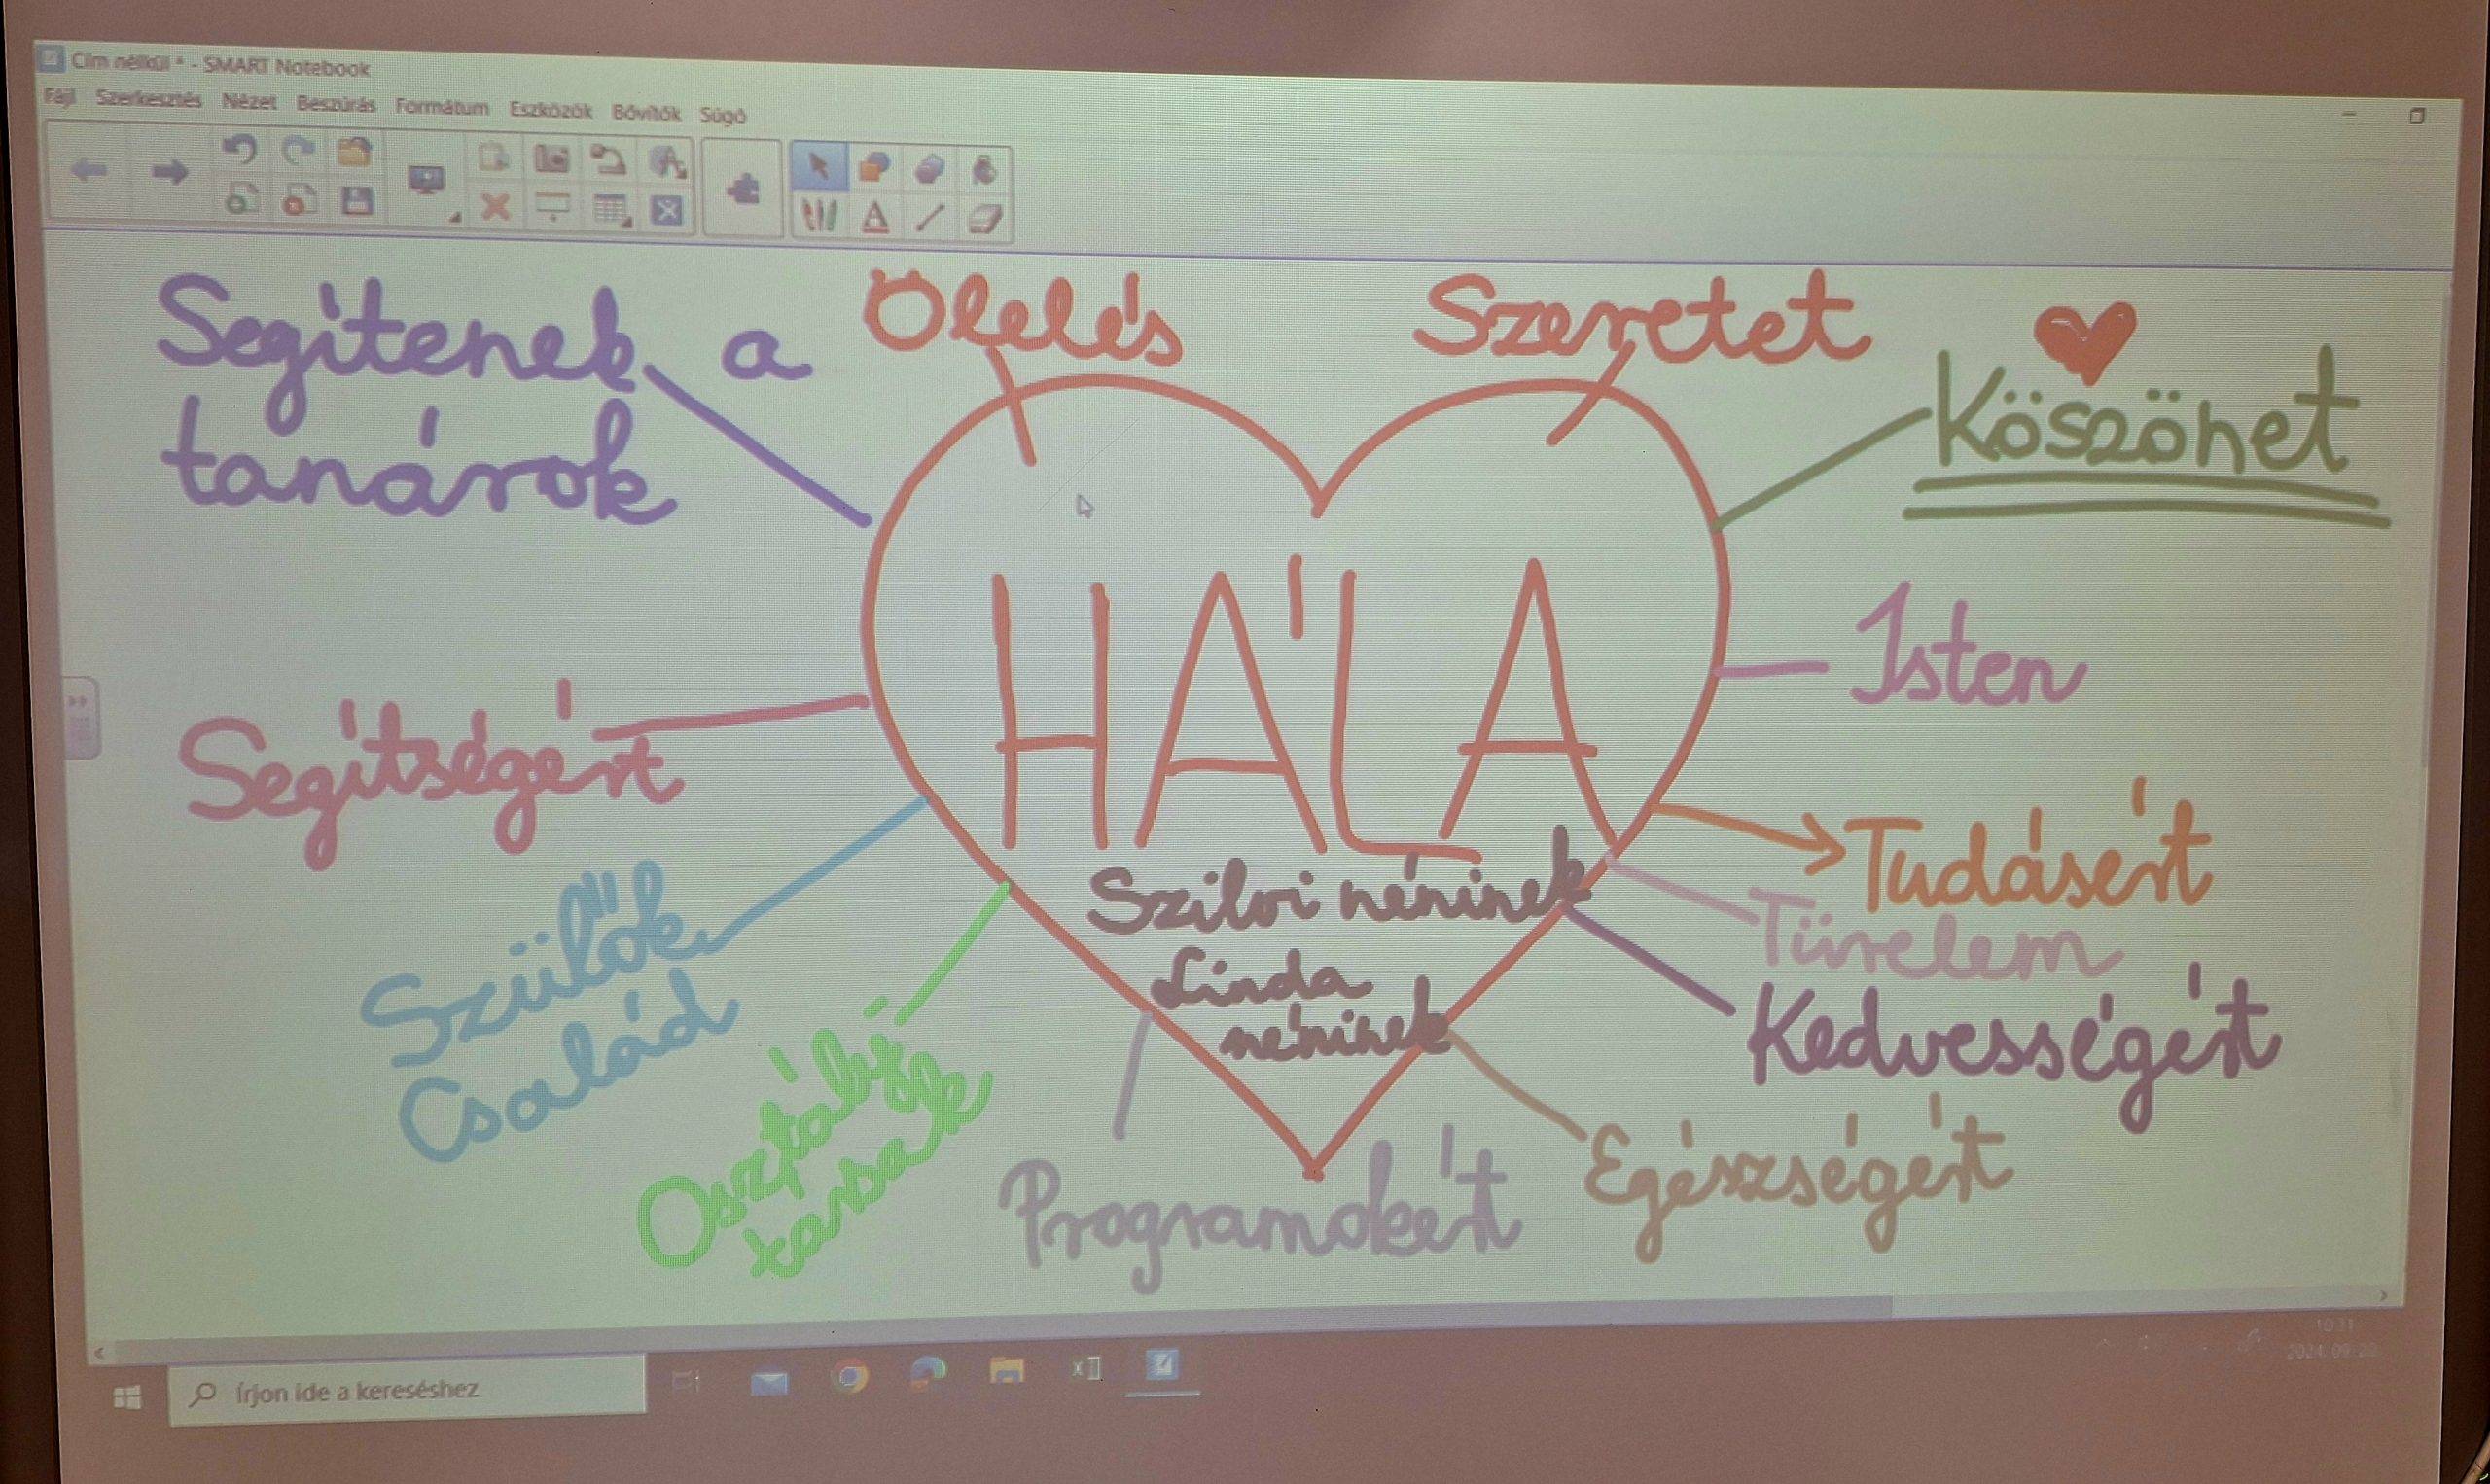 Cím nélkül * - SMART Notebook
Fájl Szerkesztés Nézet Beszúrás Formátum Eszközök Bővítők Súgó
Segítenek a
tanárok
Ölelés
Szeretet
Köszönet
HÁLA
Szilvi néninek
Linda
néninek
Isten
Segítségért
Tudásért
Türelem
Kedvességért
Szülők
Család
Osztály
társak
Programokért
Egészségért
Írjon ide a kereséshez
10:31
2024.09.20.